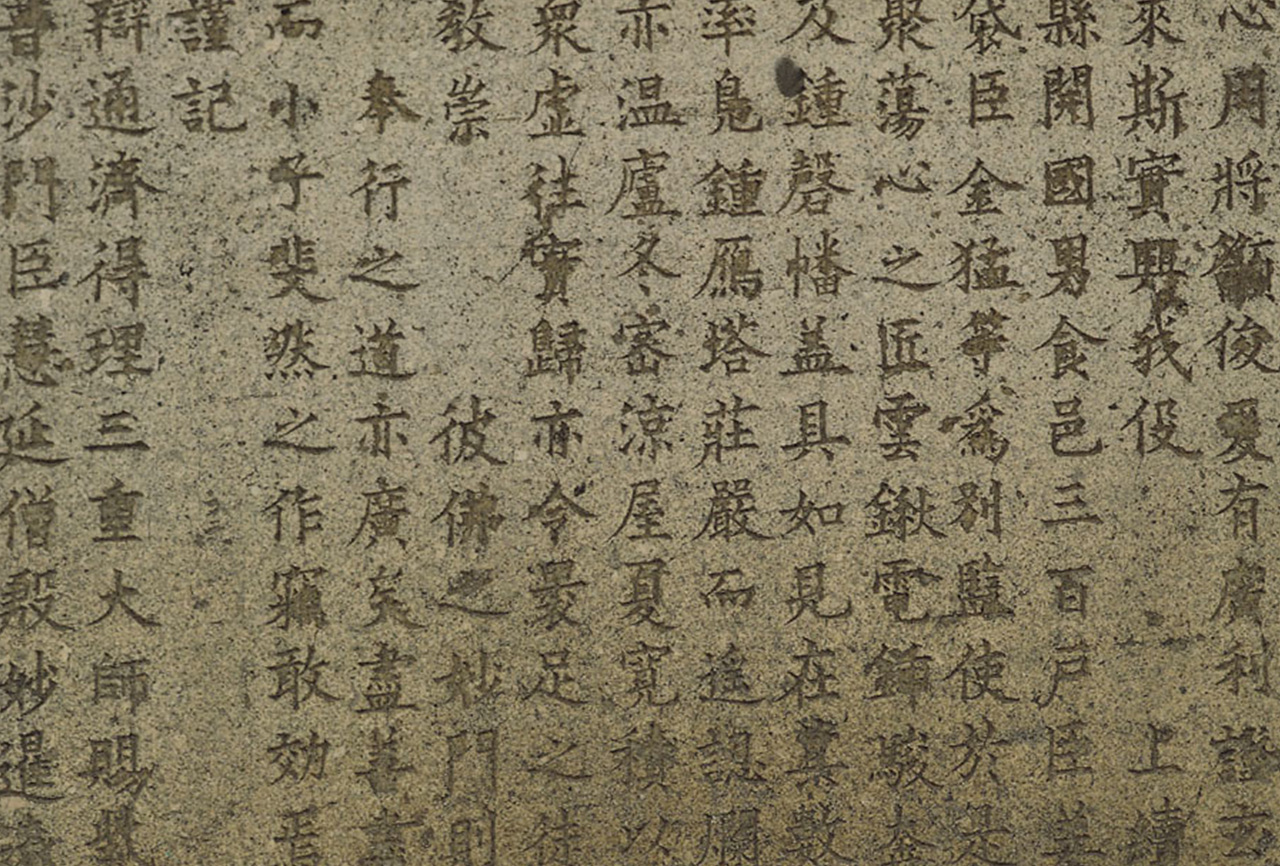 心用將籲俊爰有廣利證玄
來斯實興我伇上續
縣開國男食邑三百户臣姜
袋臣金猛等為別監使於是
聚蕩心之匠雲鍬電鍤駿奔
及鍾磬幡盖具如見在寘數
率鳧鍾雁塔莊嚴而遙認爛
亦温廬冬密涼屋夏寬積以
衆虛往實歸亦令晏足之徒
教崇彼佛之妙門則
奉行之道亦廣矣盡善盡
而小子斐然之作竊敢効
謹記
辯通濟得理三重大師賜
普沙門臣慧延僧殿妙暹